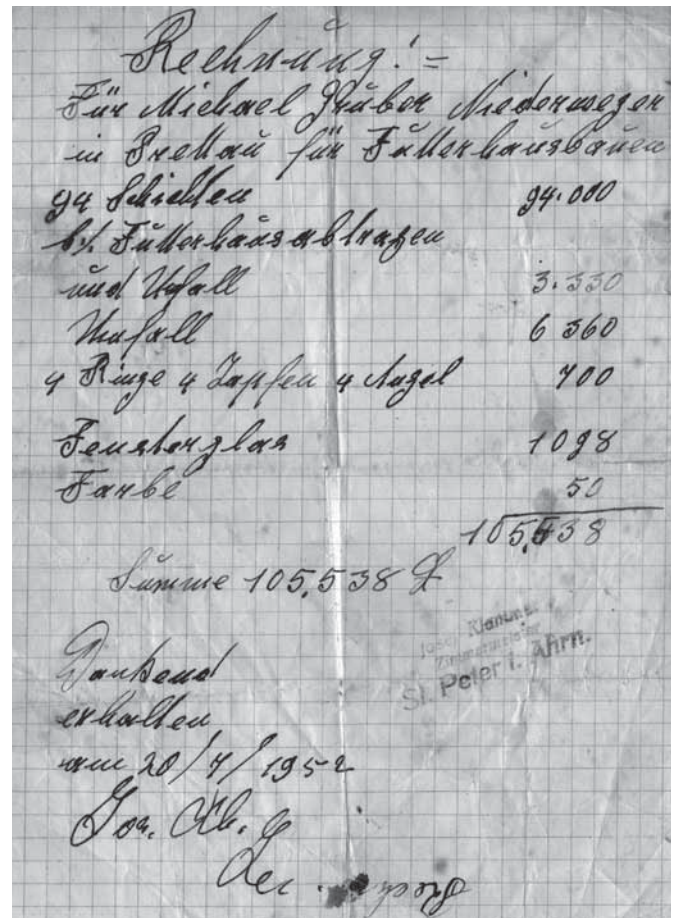 Rechnung! =
Für Michael Gruber Niederweger
in Prettau für Futterhausbauen
94 Schichten 94.000
Futterhaus abtragen
und Unfall 3.330
Unfall 6 360
4 Ringe 4 Zapfen 4 Angel 700
Fensterglas 1098
Farbe 50
105,538
Summe 105,538 L
Josef Klammer
Zimmermeister
St. Peter i. Ahrn.
Dankend
erhalten
am 20/7/1952
Jos.